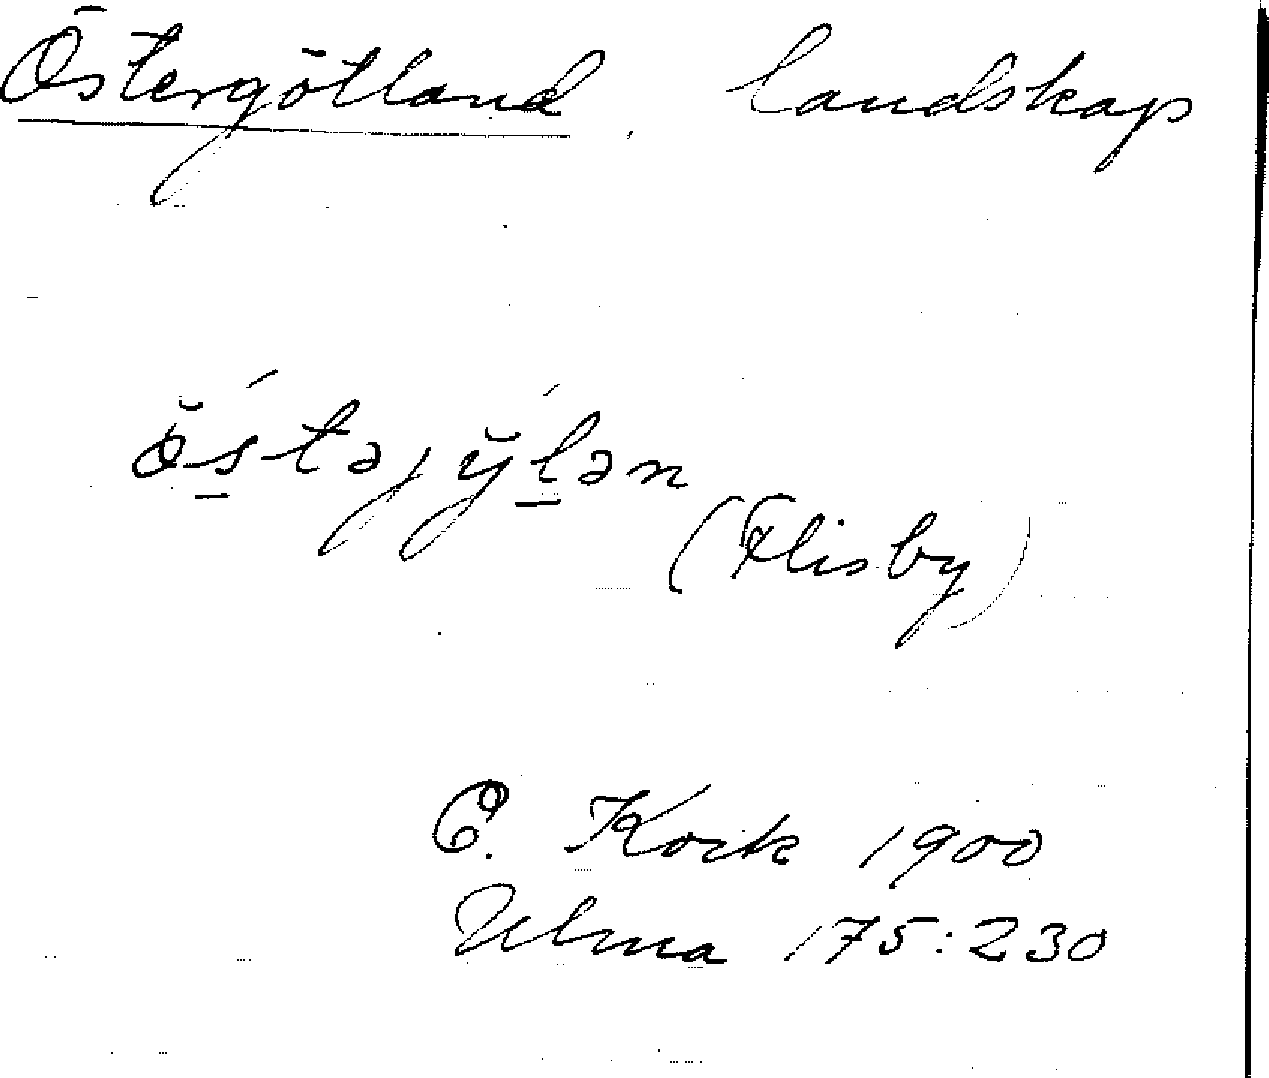 Östergötland, landskap
ö̆ś̲təjy̆ĺ̲ən
(Flisby)
E. Kock 1900
Ulma 175:230